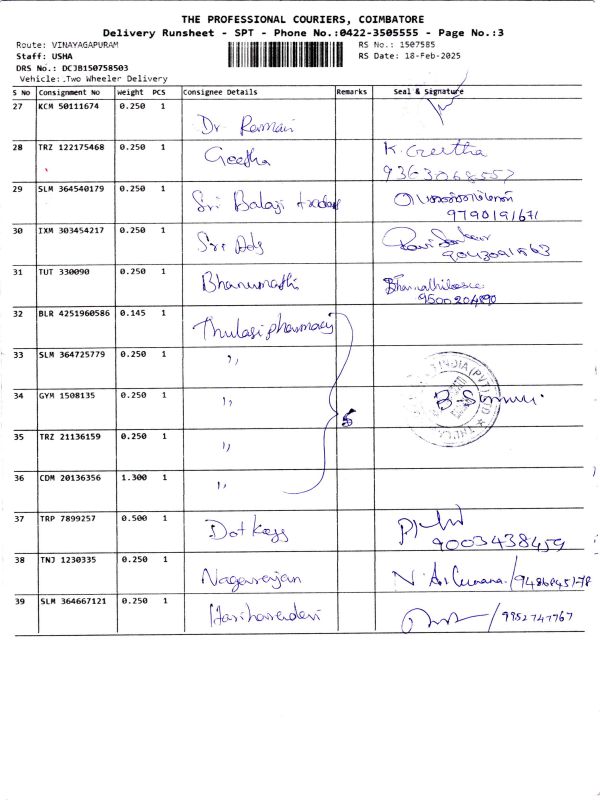 THE PROFESSIONAL COURIERS, COIMBATORE
Delivery Runsheet - SPT - Phone No.:0422-3505555 - Page No.:3
Route: VINAYAGAPURAM RS No.: 1507585
Staff: USHA RS Date: 18-Feb-2025
DRS No.: DCJB150758503
Vehicle:.Two Wheeler Delivery
S No Consignment No Weight PCS Consignee Details Remarks Seal & Signature
27 KCM 50111674 0.250 1
Dr. Raman
28 TRZ 122175468 0.250 1 Geetha K. Geetha
9363068557
29 SLM 364540179 0.250 1 Sri Balaji traders
9790191671
30 IXM 303454217 0.250 1 Sri Ads
9043091563
31 TUT 330090 0.250 1 Bhanumathi
9500204890
32 BLR 4251960586 0.145 1 Thulasi pharmacy
33 SLM 364725779 0.250 1 ,,
34 GYM 1508135 0.250 1 ,, 5
INDIA (PVT) LTD
35 TRZ 21136159 0.250 1 ,,
36 CDM 20136356 1.300 1 ,,
37 TRP 7899257 0.500 1 Dot Kays
9003438459
38 TNJ 1230335 0.250 1 Nagarajan
39 SLM 364667121 0.250 1 Hariharadevi /9952747767